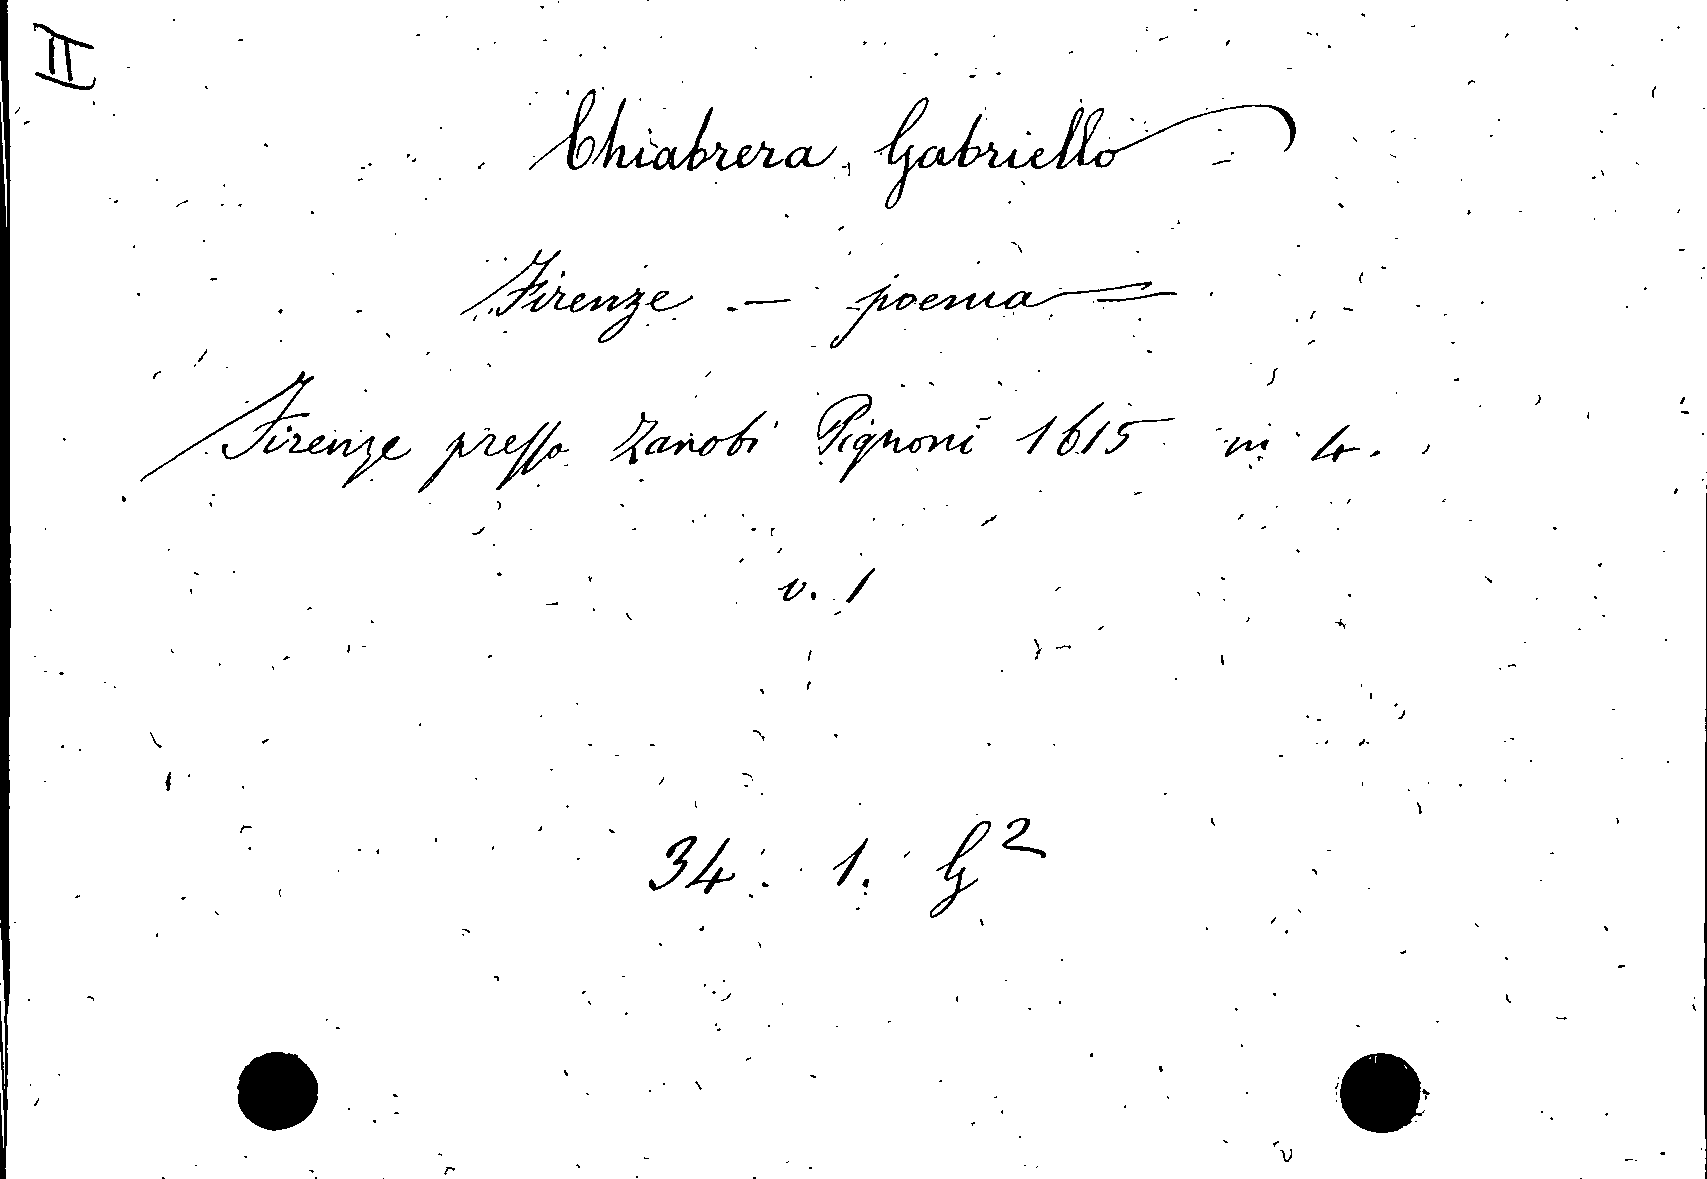 II
Chiabrera, Gabriello
Firenze - poema =
Firenze presso Zanobi Pignoni 1615 in 4.
v. 1
34. 1. G²